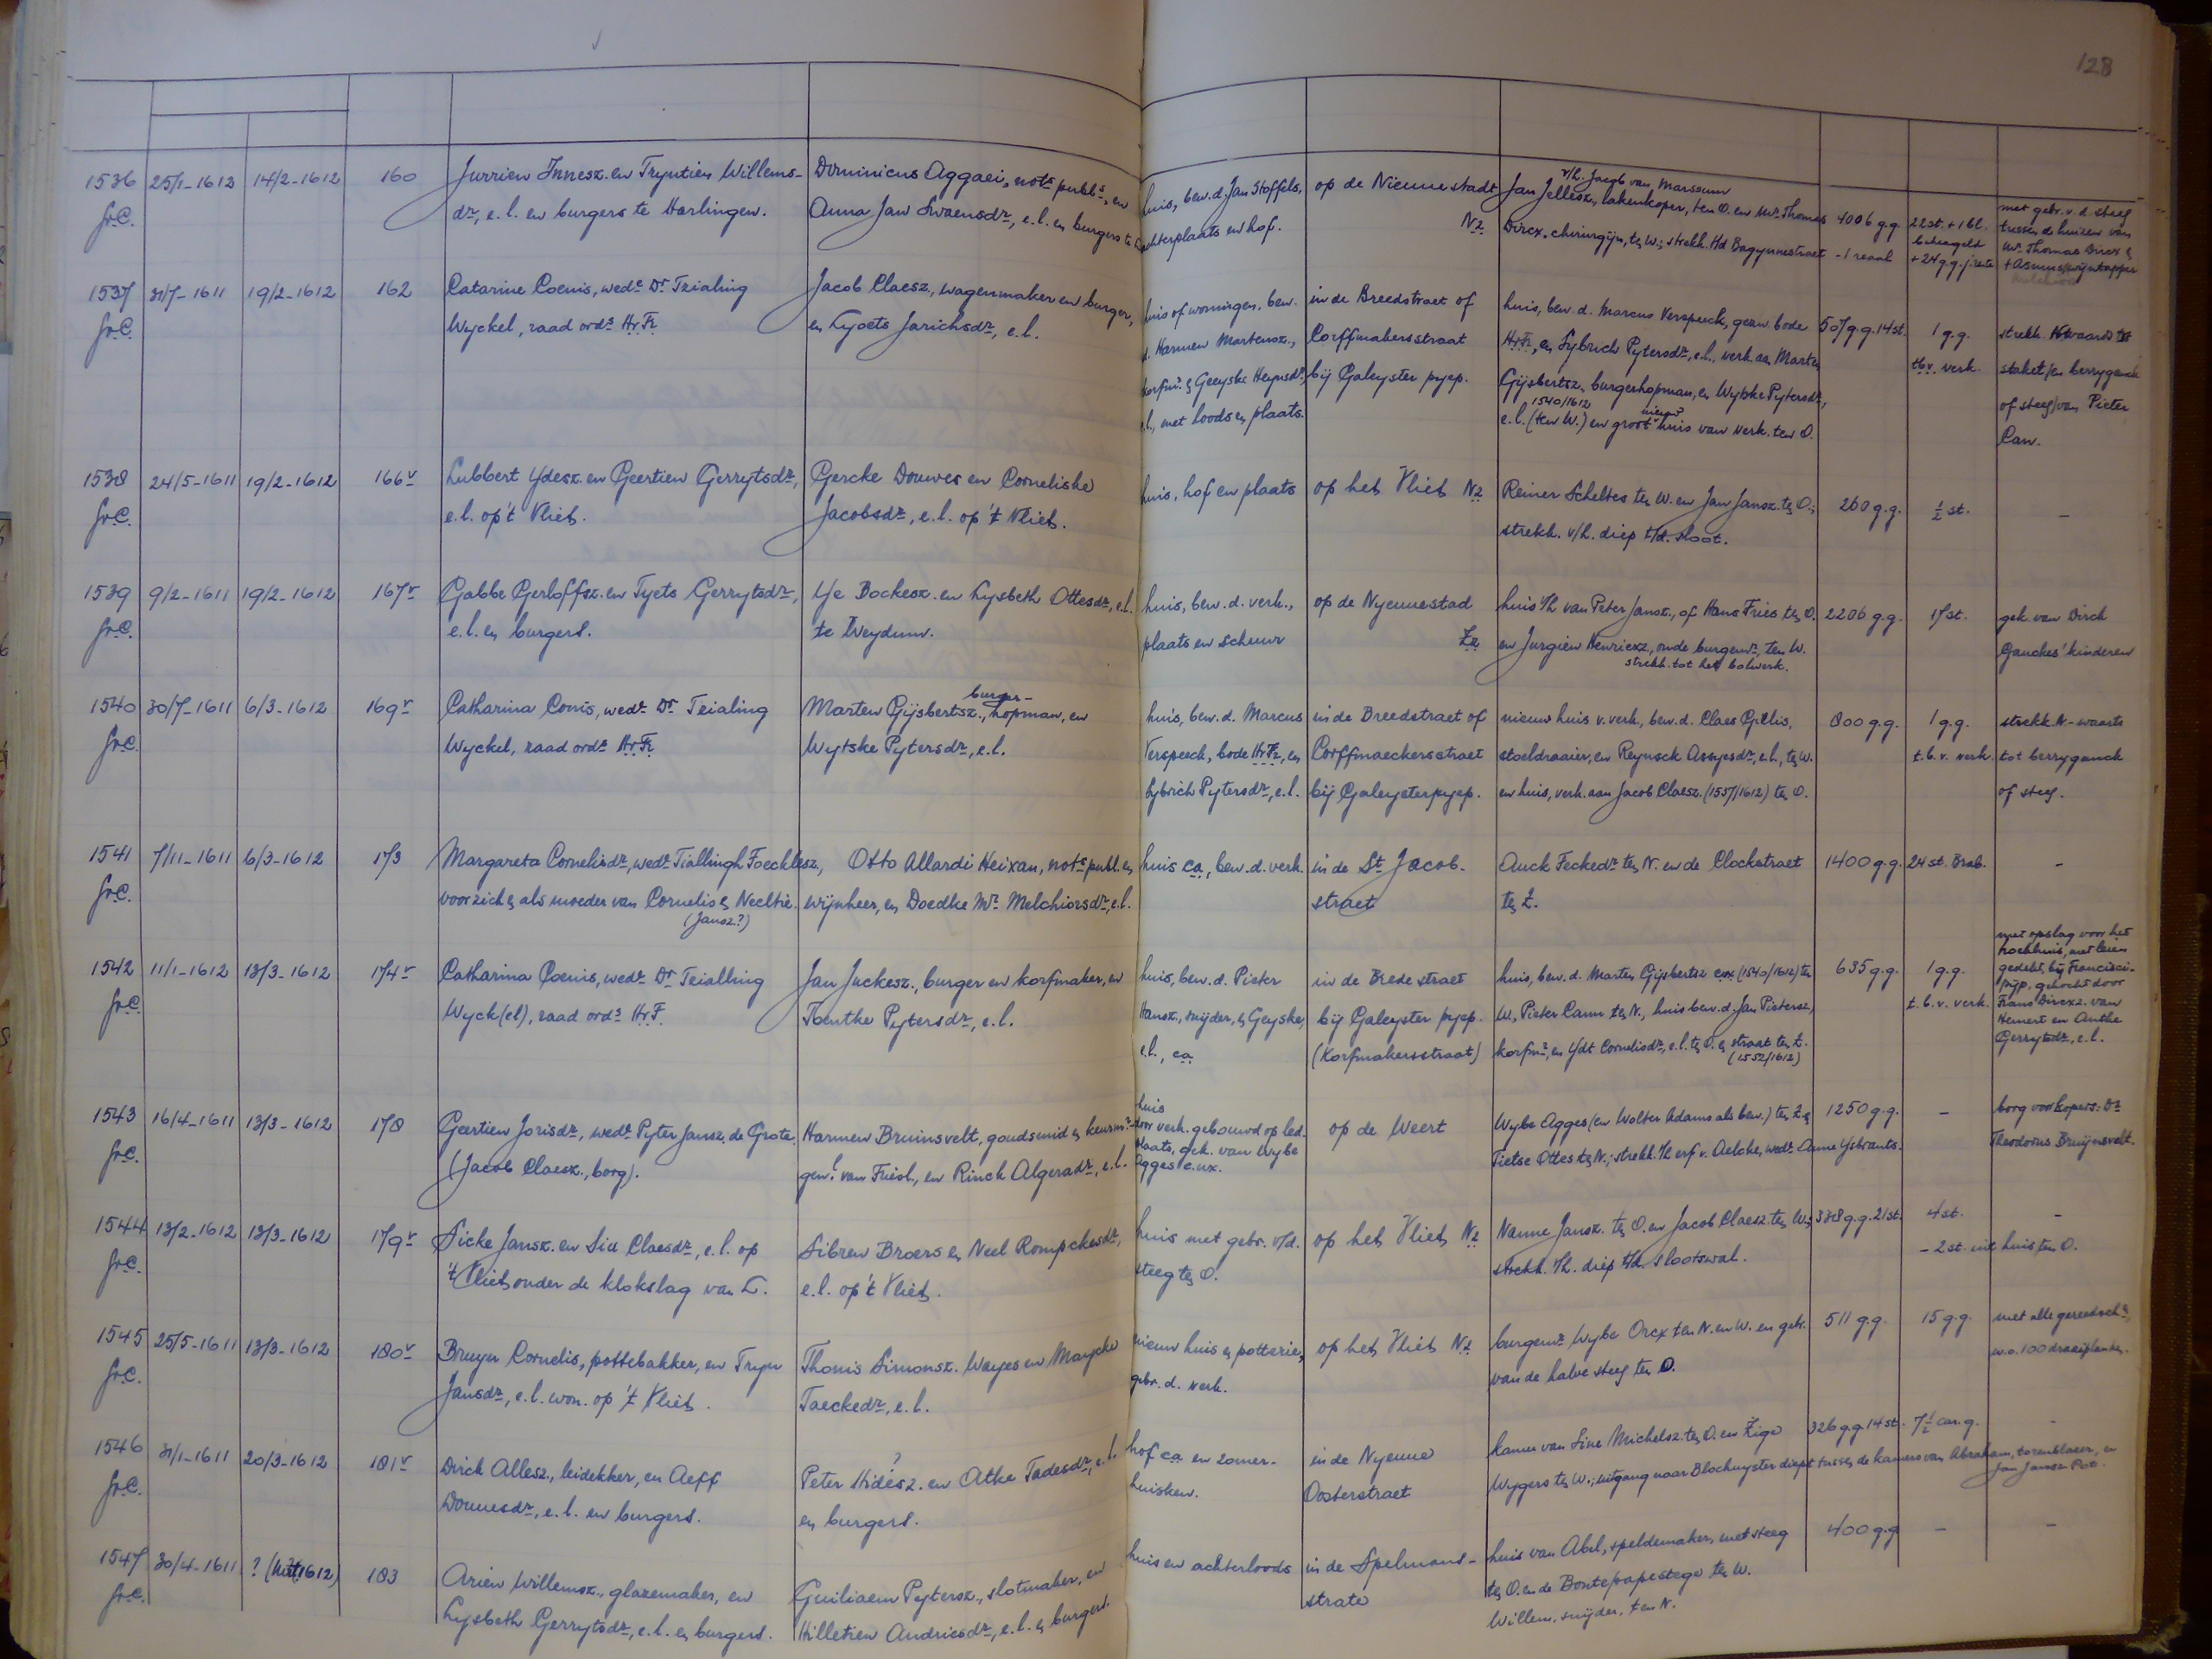 128
1536 25/1-1612 14/2-1612 160 Jurrien Innesz. en Tryntien Willems- Dominicus Aggaei, nots publs, en huis, bew. d. Jan Stoffels, op de Nieuwestadt Jan Jellesz., lakenkoper, ten O. en Mr. Thomas 4006 g.g. 22 st. + 1 bl. met gebr. v. d. steeg
v/h. Jacob van Marssum
fr.C. dr, e.l. en burgers te Harlingen. Anna Jan Swaensdr, e.l. en burgers te achterplaats en hof. Nz Dircx. chirurgijn, ten W.; strekk. tot Bagynnestraet - 1 reaal + 24 g.g. j. rente tussen de huizen van
Mr. Thomas Dircx &
+ Asmus, wijntapper
1537 31/7-1611 19/2-1612 162 Catarine Coenis, wede Dr Teialing Jacob Claesz., wagenmaker en burger, huis of woningen, bew. in de Breedstraet of huis, bew. d. Marcus Verspeeck, gezw. bode 507 g.g. 14 st. 1 g.g. strekk. N-waarts tot
fr.C. Wyckel, raad ords Hr.Fr. en Tyoets Jarichsdr, e.l. d. Harmen Martensz., Corffmakersstraat Hr.Fr., en Sybrich Pytersdr, e.l., verk. aan Marten t.b.v. verk. staket/en berryganck
korfmr. & Geeyske Heynsdr, bij Galeyster pyep. Gijsbertsz. burgerhopman, en Wytske Pytersdr, of steeg/van Pieter
1540/1612 nieuw
e.l., met loods en plaats. e.l. (ten W.) en groot huis van verk. ten O. Can.
1538 24/5-1611 19/2-1612 166v Lubbert Ydesz. en Geertien Gerrytsdr, Gercke Douwes en Corneliske huis, hof en plaats op het Vliet Nz Reiner Scheltes ten W. en Jan Jansz. ten O.; 260 g.g. ½ st. -
fr.C. e.l. op 't Vliet. Jacobsdr, e.l. op 't Vliet. strekk. v/h. diep t/d. sloot.
1539 9/2-1611 19/2-1612 167v Gabbe Gerloffsz. en Tyets Gerrytsdr, Ye Bockesz. en Lysbeth Ottesdr, e.l. huis, bew. d. verk., op de Nyeuwestad huis v/h van Peter Jansz., of Hans Fries ten O. 2206 g.g. 17 st. gek. van Dirck
fr.C. e.l. en burgers. te Weydum. plaats en schuur Zz en Jurgien Henricxz, oude burgemr, ten W. Gauckes' kinderen
strekk. tot het bolwerk.
1540 30/7-1611 6/3-1612 169v Catharina Conis, wedr Dr Teialing Marten Gijsbertsz., burger-hopman, en huis, bew. d. Marcus in de Breedstraet of nieuw huis v. verk., bew. d. Claes Gillis, 800 g.g. 1 g.g. strekk. N.-waarts
fr.C. Wyckel, raad ords Hr.Fr. Wytske Pytersdr, e.l. Verspeeck, bode Hr.Fr., en Corffmaeckersstraet stoeldraaier, en Reynsck Assyesdr, e.l., ten W. t.b.v. verk. tot berryganck
Sybrich Pytersdr, e.l. bij Galeysterpyep. en huis, verk. aan Jacob Claesz. (1537/1612) ten O. of steeg.
1541 7/11-1611 6/3-1612 173 Margareta Cornelisdr, wedr Tiallingh Foecklesz, Otto Allardi Heixan, nots publ. en huis ca, bew. d. verk. in de St Jacob- Auck Feckedr ten N. en de Clockstraet 1400 g.g. 24 st. Brab. -
fr.C. voor zich & als moeder van Cornelis & Neeltie. wijnheer, en Doedke Mr. Melchiorsdr, e.l. straet ten Z.
(Jansz?)
1542 11/1-1612 13/3-1612 174v Catharina Coenis, wedr Dr Teialling Jan Juckesz., burger en korfmaker, en huis, bew. d. Pieter in de Brede straet huis, bew. d. Marten Gijsbertsz cux (1540/1612) ten 635 g.g. 1 g.g. met opslag voor het
hoekhuis, met leien
gedekt, bij Francisci-
fr.C. Wyck(el), raad ords Hr.F. Tientke Pytersdr, e.l. Hansz., snijder, & Geyske, bij Galeyster pyep. W., Pieter Cann ten N., huis bew. d. Jan Pietersz, t.b.v. verk. pijp, gekocht door
Frans Dircxz. van
e.l., ca. (Korfmakersstraat) korfmr, en Ydt Cornelisdr, e.l. ten O. & straat ten Z. Hemert en Anthe
(1552/1612) Gerrytsdr, e.l.
1543 16/4-1611 13/3-1612 178 Geertien Jorisdr, wedr Pyter Jansz. de Grote. Harmen Bruinsvelt, goudsmid & keurmr. huis
door verk. gebouwd op led. op de Weert Wybe Agges (en Wolter Adams als bew.) ten Z. & 1250 g.g. - borg voor kopers: Dr
fr.C. (Jacob Claesz., borg). genl. van Friesl., en Rinck Algeradr, e.l. plaats, gek. van Wybe Tietse Ottes ten N.; strekk. t/h erf v. Aelcke, wedr Anne Ysbrants. Theodorus Bruijnsvelt.
Agges c. ux.
1544 13/2-1612 13/3-1612 179v Sicke Jansz. en Siu Claesdr, e.l. op Sibren Broers & Neel Rompckesdr, huis met gebr. v/d. op het Vliet Nz Nanne Jansz. ten O. en Jacob Claesz. ten W.; 338 g.g. 21 st. 4 st. -
fr.C. 't Vliet onder de klokslag van L. e.l. op 't Vliet. steeg ten O. strekk. v/h. diep t/d. slootswal. - 2 st. uit huis ten O.
1545 25/5-1611 13/3-1612 180v Bruyn Cornelis, pottebakker, en Tryn Thonis Simonsz. Wayes en Maycke nieuw huis & potterie, op het Vliet Nz burgemr Wybe Orcx ten N. en W. en gebr. 511 g.g. 15 g.g. met alle gereedsch.,
fr.C. Jansdr, e.l. won. op 't Vliet. Taeckedr, e.l. gebr. d. verk. van de halve steeg ten O. w.o. 100 draaiplanken.
1546 31/1-1611 20/3-1612 181v Dirck Allesz., leidekker, en Aeff Peter Hidesz. ? en Atke Tadesdr, e.l. hof ca en zomer- in de Nyeuwe kamer van Sine Michelsz. ten O. en Zige 326 g.g. 14 st. 7½ car. g. -
fr.C. Douwesdr, e.l. en burgers. en burgers. huisken. Oosterstraet Wygers ten W.; uitgang naar Blochuyster diept tussen de kamers van Abraham, torenblaser, en
Jan Jansz Pot.
1547 30/4-1611 ? (mrt. 1612) 183 Arien Willemsz., glazemaker, en Guiliaem Pytersz., slotmaker, en huis en achterloods in de Spelmans- huis van Abel, speldemaker, met steeg 400 g.g. - -
fr.C. Lysbeth Gerrytsdr, e.l. en burgers. Hilletien Andriesdr, e.l. & burgers. strate ten O. en de Bontepapestege ten W.
Willem, snijder, ten N.